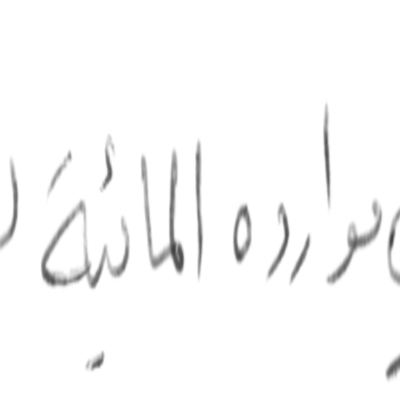 موارده المائية